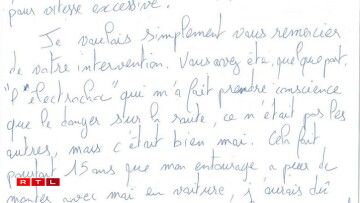 pour vitesse excessive.
Je voulais simplement vous remercier
de votre intervention. Vous avez été, quelque part,
"l'électrochoc" qui m'a fait prendre conscience
que le danger sur la route, ce n'était pas les
autres, mais c'était bien moi. Cela fait
pourtant 15 ans que mon entourage a peur de
monter avec moi en voiture, j'aurais dû
RTL